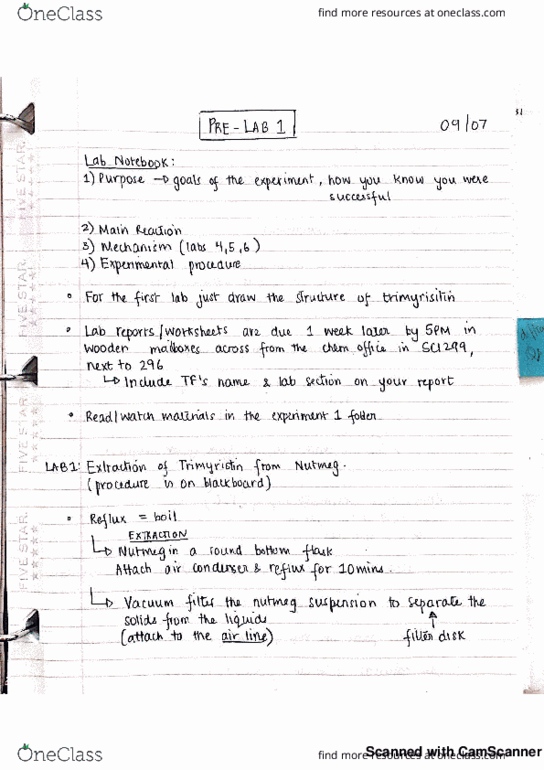 OneClass
find more resources at oneclass.com
31
PRE-LAB 1
09/07
Lab Notebook:
1) Purpose → goals of the experiment, how you know you were
successful
2) Main Reaction
3) Mechanism (labs 4,5,6)
4) Experimental procedure
• For the first lab just draw the structure of trimyrisitin
• Lab reports/worksheets are due 1 week later by 5PM in
wooden mailboxes across from the chem office in SCI299,
next to 296
↳ Include TF's name & lab section on your report
• Read/watch materials in the experiment 1 folder
LAB 1: Extraction of Trimyristin from Nutmeg.
(procedure is on blackboard)
• Reflux = boil
EXTRACTION
↳ Nutmeg in a round bottom flask
Attach air condenser & reflux for 10mins.
↳ Vacuum filter the nutmeg suspension to separate the
solids from the liquids
(attach to the air line)
↑
filter disk
FIVE STAR.
FIVE STAR.
FIVE STAR.
FIVE STAR.
OneClass
find more resources at oneclass.com
Scanned with CamScanner